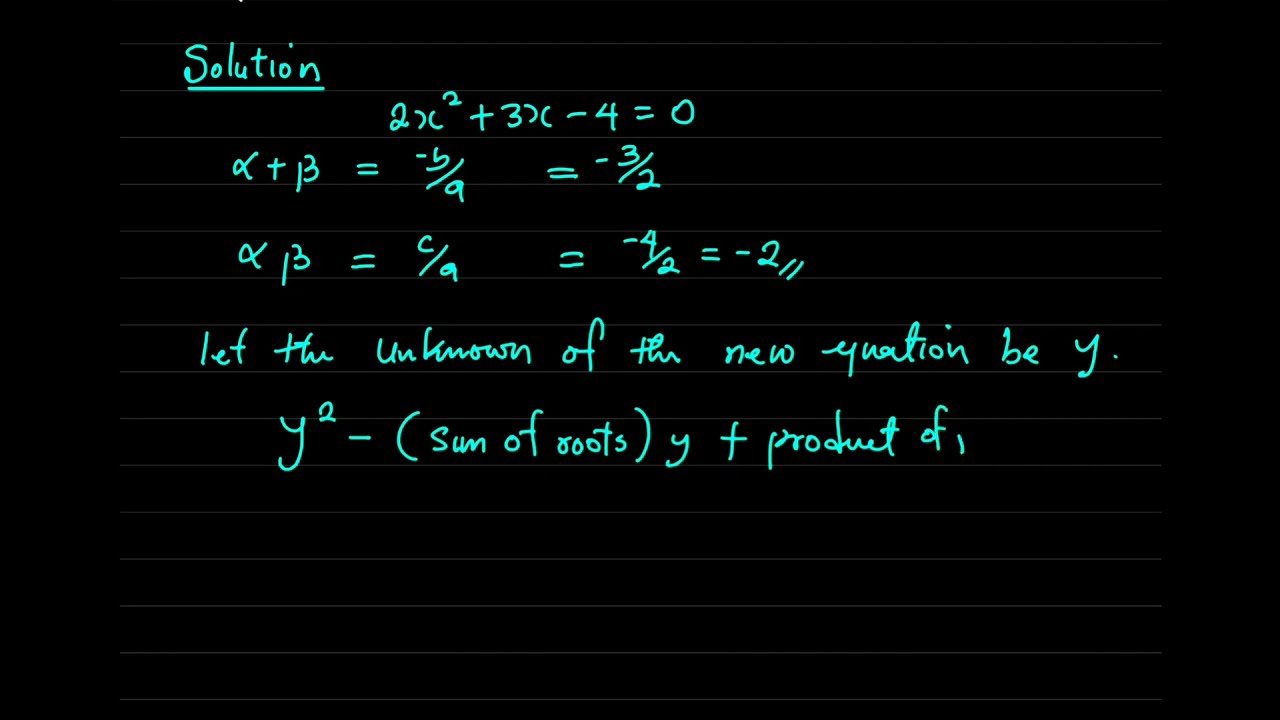 Solution
2x² + 3x - 4 = 0
α + β = -b/a = -3/2
αβ = c/a = -4/2 = -2//
let the unknown of the new equation be y.
y² - (sum of roots) y + product of